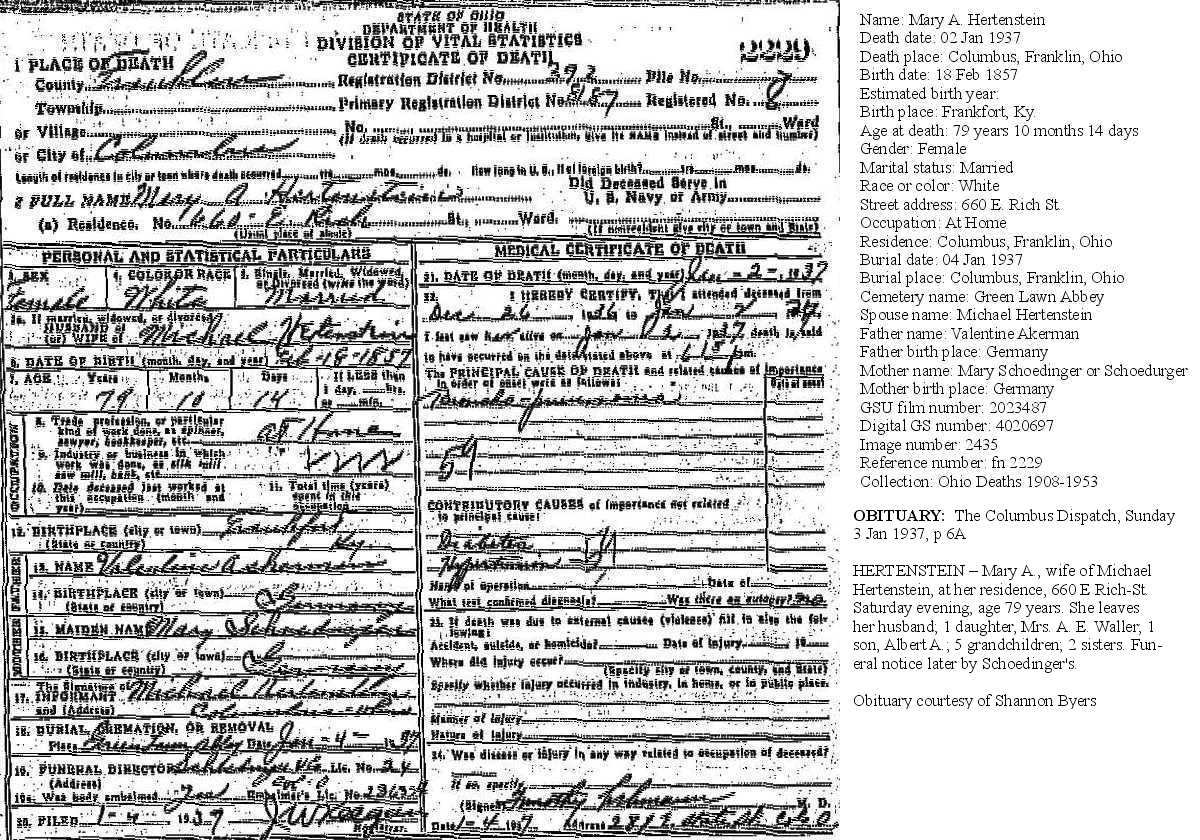 STATE OF OHIO
DEPARTMENT OF HEALTH
DIVISION OF VITAL STATISTICS
CERTIFICATE OF DEATH
1 PLACE OF DEATH
County Franklin Registration District No. 392 File No. 8
Township Primary Registration District No. 8187 Registered No. 8
or Village No. St., Ward
(If death occurred in a hospital or institution, give its NAME instead of street and number)
or City of Columbus
Length of residence in city or town where death occurred yrs. mos. ds. How long in U. S., if of foreign birth? yrs. mos. ds.
Did Deceased Serve in
2 FULL NAME Mary A Hertenstein U. S. Navy or Army
(a) Residence. No. 660 - E Rich St., Ward.
(Usual place of abode) (If nonresident give city or town and State)
PERSONAL AND STATISTICAL PARTICULARS
3. SEX 4. COLOR OR RACE 5. Single, Married, Widowed,
or Divorced (write the word)
Female White Married
5a. If married, widowed, or divorced
HUSBAND of
(or) WIFE of Michael Hertenstein
6. DATE OF BIRTH (month, day, and year) Feb-18-1857
7. AGE Years Months Days If LESS than
1 day, hrs.
79 10 14 or min.
OCCUPATION
8. Trade, profession, or particular
kind of work done, as spinner,
sawyer, bookkeeper, etc. at Home
9. Industry or business in which
work was done, as silk mill,
saw mill, bank, etc.
10. Date deceased last worked at
this occupation (month and
year)
11. Total time (years)
spent in this
occupation
12. BIRTHPLACE (city or town)
(State or country) Ky.
FATHER
13. NAME Valentine
14. BIRTHPLACE (city or town)
(State or country) Germany
MOTHER
15. MAIDEN NAME Mary
16. BIRTHPLACE (city or town)
(State or country) Germany
The Signature of
17. INFORMANT Michael Hertenstein
and (Address) Columbus
18. BURIAL, CREMATION, OR REMOVAL
Place Green Lawn Abbey Date Jan - 4 - 1937
19. FUNERAL DIRECTOR Lic. No. 24
(Address)
19a. Was body embalmed Yes Embalmer's Lic. No.
20. FILED 1-4 1937
Registrar.
MEDICAL CERTIFICATE OF DEATH
21. DATE OF DEATH (month, day, and year) Jan - 2 - 1937
22. I HEREBY CERTIFY, That I attended deceased from
Dec 26 1936 to Jan 2 1937
I last saw her alive on Jan 2 1937 death is said
to have occurred on the date stated above at m.
The PRINCIPAL CAUSE OF DEATH and related causes of importance
in order of onset were as follows: Date of onset
Broncho-pneumonia
CONTRIBUTORY CAUSES of importance not related
to principal cause:
Diabetes
Hypertension
Name of operation Date of
What test confirmed diagnosis? Was there an autopsy? no
23. If death was due to external causes (violence) fill in also the fol-
lowing:
Accident, suicide, or homicide? Date of injury 19
Where did injury occur?
(Specify city or town, county, and State)
Specify whether injury occurred in industry, in home, or in public place.
Manner of injury
Nature of injury
24. Was disease or injury in any way related to occupation of deceased?
If so, specify
(Signed) Timothy M. D.
Date 1-4 1937 Address
Name: Mary A. Hertenstein
Death date: 02 Jan 1937
Death place: Columbus, Franklin, Ohio
Birth date: 18 Feb 1857
Estimated birth year:
Birth place: Frankfort, Ky.
Age at death: 79 years 10 months 14 days
Gender: Female
Marital status: Married
Race or color: White
Street address: 660 E. Rich St.
Occupation: At Home
Residence: Columbus, Franklin, Ohio
Burial date: 04 Jan 1937
Burial place: Columbus, Franklin, Ohio
Cemetery name: Green Lawn Abbey
Spouse name: Michael Hertenstein
Father name: Valentine Akerman
Father birth place: Germany
Mother name: Mary Schoedinger or Schoedurger
Mother birth place: Germany
GSU film number: 2023487
Digital GS number: 4020697
Image number: 2435
Reference number: fn 2229
Collection: Ohio Deaths 1908-1953
OBITUARY: The Columbus Dispatch, Sunday
3 Jan 1937, p 6A
HERTENSTEIN – Mary A., wife of Michael
Hertenstein, at her residence, 660 E Rich-St.
Saturday evening, age 79 years. She leaves
her husband; 1 daughter, Mrs. A. E. Waller; 1
son, Albert A.; 5 grandchildren; 2 sisters. Fun-
eral notice later by Schoedinger's.
Obituary courtesy of Shannon Byers